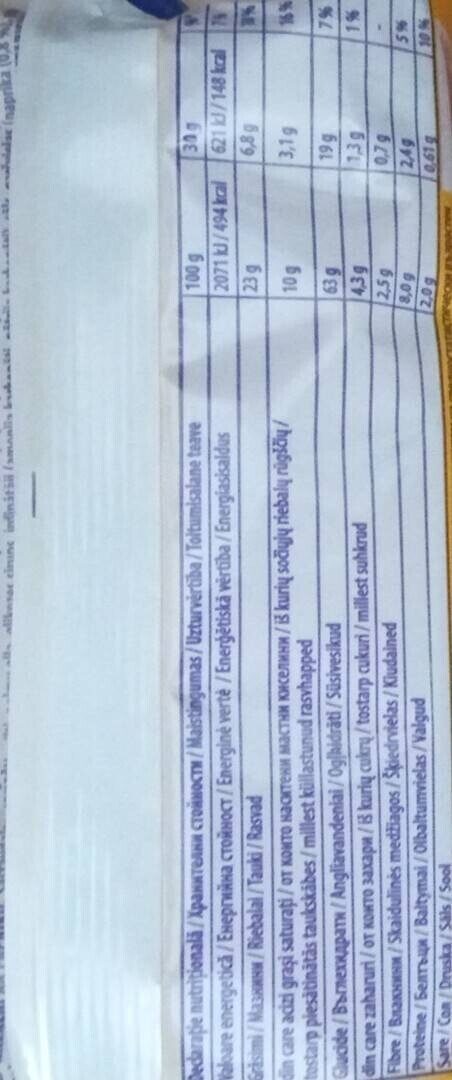 Declarație nutrițională / Хранителни стойности / Maistingumas / Uzturvērtība / Toitumisalane teave 100 g 30 g
Valoare energetică / Енергийна стойност / Energinė vertė / Enerģētiskā vērtība / Energiasisaldus 2071 kJ / 494 kcal 621 kJ / 148 kcal
Grăsimi / Мазнини / Riebalai / Tauki / Rasvad 23 g 6,8 g
din care acizi grași saturați / от които наситени мастни киселини / iš kurių sočiųjų riebalų rūgščių / 10 g 3,1 g 16 %
tostarp piesātinātās taukskābes / millest küllastunud rasvhapped
Glucide / Въглехидрати / Angliavandeniai / Ogļhidrāti / Süsivesikud 63 g 19 g 7 %
din care zaharuri / от които захари / iš kurių cukrų / tostarp cukuri / millest suhkrud 4,3 g 1,3 g 1 %
Fibre / Влакнини / Skaidulinės medžiagos / Šķiedrvielas / Kiudained 2,5 g 0,7 g -
Proteine / Белтъци / Baltymai / Olbaltumvielas / Valgud 8,0 g 2,4 g 5 %
Sare / Сол / Druska / Sāls / Sool 2,0 g 0,61 g 10 %